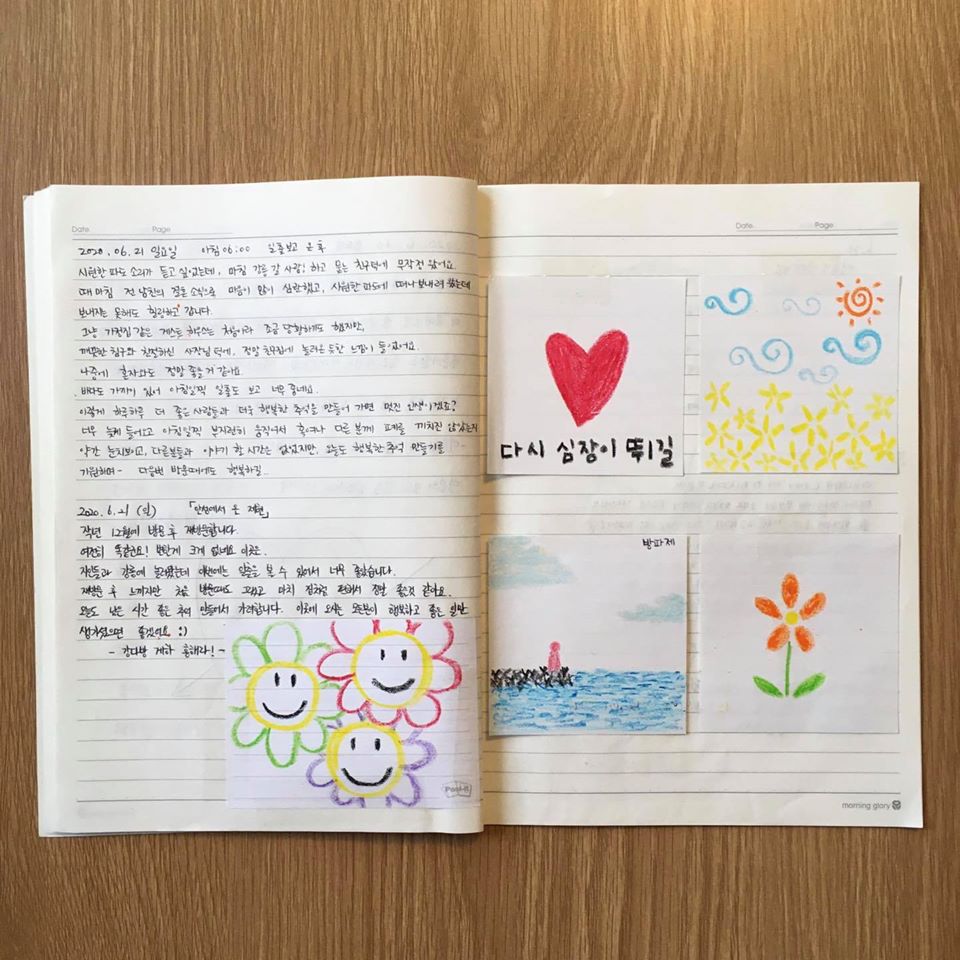 Date Page
2020.06.21 일요일 아침 06:00 일출보고 온 후
시원한 파도 소리가 듣고 싶었는데, 마침 강릉 갈 사람! 하고 묻는 친구덕에 무작정 왔어요.
때마침 전 남친의 결혼 소식으로 마음이 많이 심란했고, 시원한 파도에 떠나보내려 했는데
보내지는 못해도 힐링하고 갑니다.
그냥 가정집 같은 게스트 하우스는 처음이라 조금 당황하기도 했지만,
깨끗한 침구와 친절하신 사장님 덕에, 정말 친구집에 놀러온 듯한 느낌이 들었어요.
나중에 혼자와도 정말 좋을 거 같아요.
바다도 가까이 있어 아침일찍 일출도 보고 너무 좋네요.
이렇게 하루하루 더 좋은 사람들과 더욱 행복한 추억을 만들어 가면 멋진 인생이겠죠?
너무 늦게 들어오고 아침일찍 부지런히 움직여서 혹여나 다른 분께 피해를 끼치진 않았는지
약간 눈치보고, 다른분들과 이야기 할 시간은 없었지만, 오늘도 행복한 추억 만들기를
기원하며- 다음번 방문때에도 행복하길..
2020.6.21 (일) 「안성에서 온 재현」
작년 12월에 방문 후 재방문합니다.
여전히 똑같군요! 변한게 크게 없네요 이곳은.
지인들과 강릉에 놀러왔는데 이번에는 일출을 볼 수 있어서 너무 좋았습니다.
재방문 후 느끼지만 처음 방문때도 그렇고 마치 집처럼 편해서 정말 좋은것 같아요.
오늘도 남은 시간 좋은 추억 만들어서 가려합니다. 이곳에 오시는 모든분이 행복하고 좋은 일만
생기셨으면 좋겠어요 :)
- 강다방 게하 흥해라! -
Post-it
Date Page
다시 심장이 뛰길
방파제
morning glory